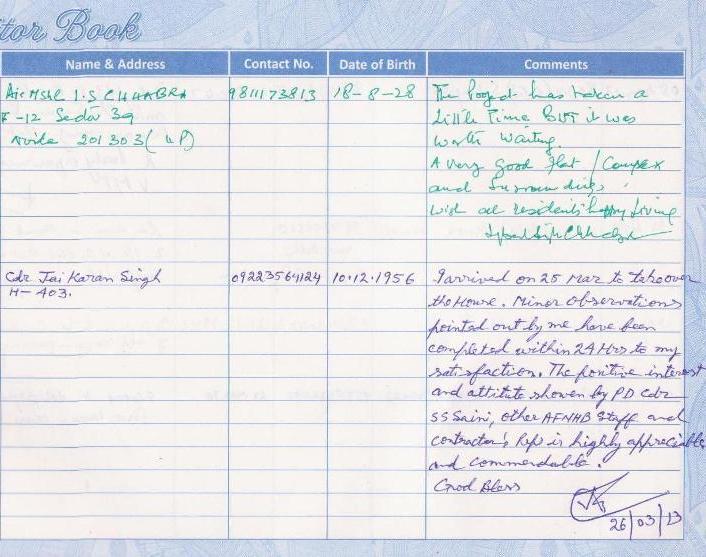 itor Book
Name & Address Contact No. Date of Birth Comments
Air Mshl I.S CHHABRA 9811173813 18-8-28 The Project has taken a
F-12 Sector 39 Little Time BUT it was
Noida 201303 (UP) worth waiting.
A very good flat / Complex
and Surroundings
wish all residents happy living
Cdr Jai Karan Singh 09223564124 10.12.1956 I arrived on 25 Mar to takeover
H-403. the House. Minor observations
pointed out by me have been
completed within 24 Hrs to my
satisfaction. The positive interest
and attitute shown by PD Cdr
SS Saini, other AFNHB Staff and
contractor's Reps is highly appreciable
and commendable.
God Bless
26/03/13